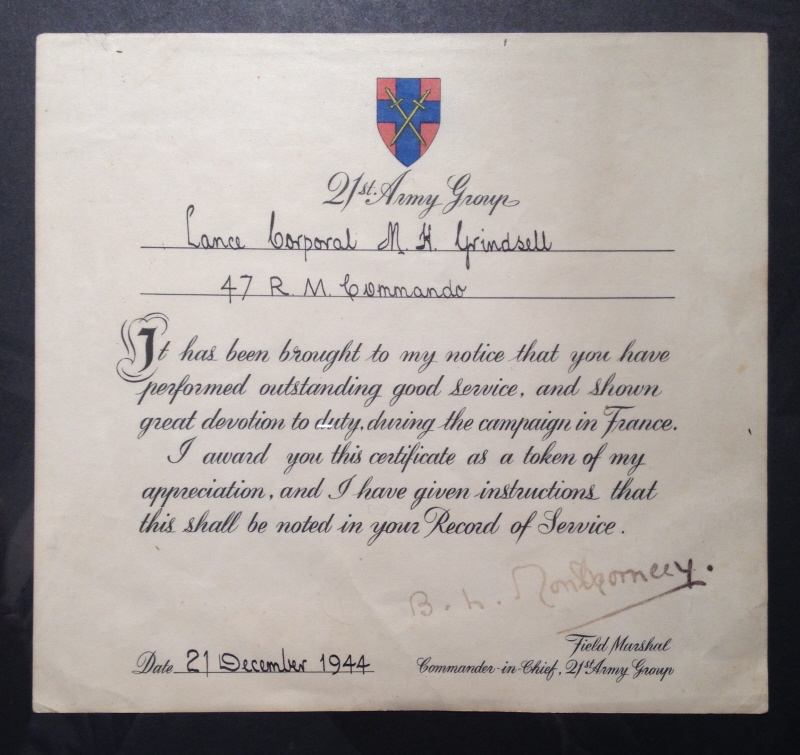 21st. Army Group
Lance Corporal M. H. Grindsell
47 R. M. Commando
It has been brought to my notice that you have
performed outstanding good service, and shown
great devotion to duty, during the campaign in France.
I award you this certificate as a token of my
appreciation, and I have given instructions that
this shall be noted in your Record of Service.
B. L. Montgomery.
Field Marshal
Date 21 December 1944
Commander-in-Chief, 21st Army Group